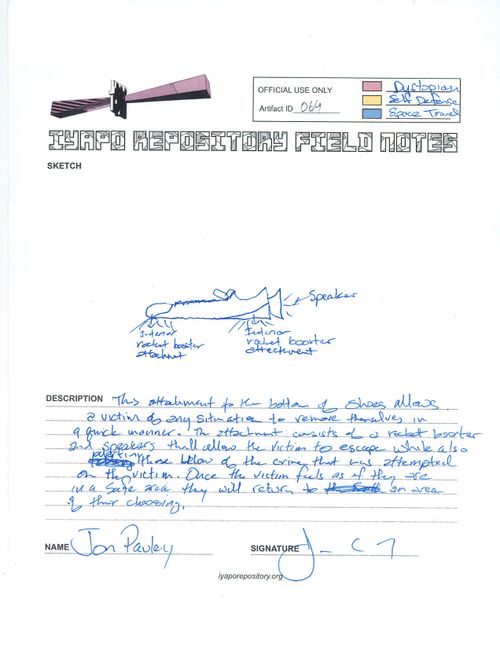 OFFICIAL USE ONLY
Artifact ID 064
Dystopian
Self Defense
Space Travel
IYAPO REPOSITORY FIELD NOTES
SKETCH
Speaker
Interior
rocket booster
attachment
Interior
rocket booster
attachment
DESCRIPTION This attachment to the bottom of shoes allows
a victim of any situation to remove themselves in
a quick manner. The attachment consists of a rocket booster
and speakers thatll allow the victim to escape while also
alerting those below of the crime that was attempted
on the victim. Once the victim feels as if they are
in a safe area they will return to an area
of their choosing.
NAME Jon Pauley SIGNATURE
iyaporepository.org